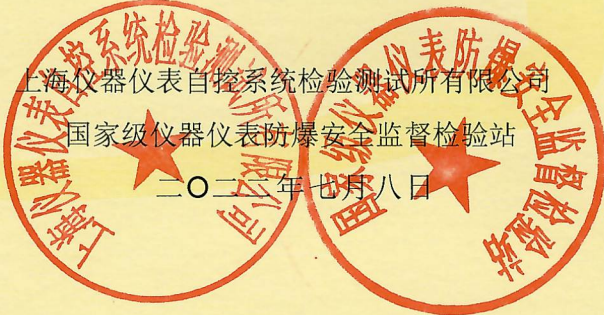 上海仪器仪表自控系统检验测试所有限公司
国家级仪器仪表防爆安全监督检验站
二〇二二年七月八日
上海仪器仪表自控系统检验测试所有限公司
国家级仪器仪表防爆安全监督检验站